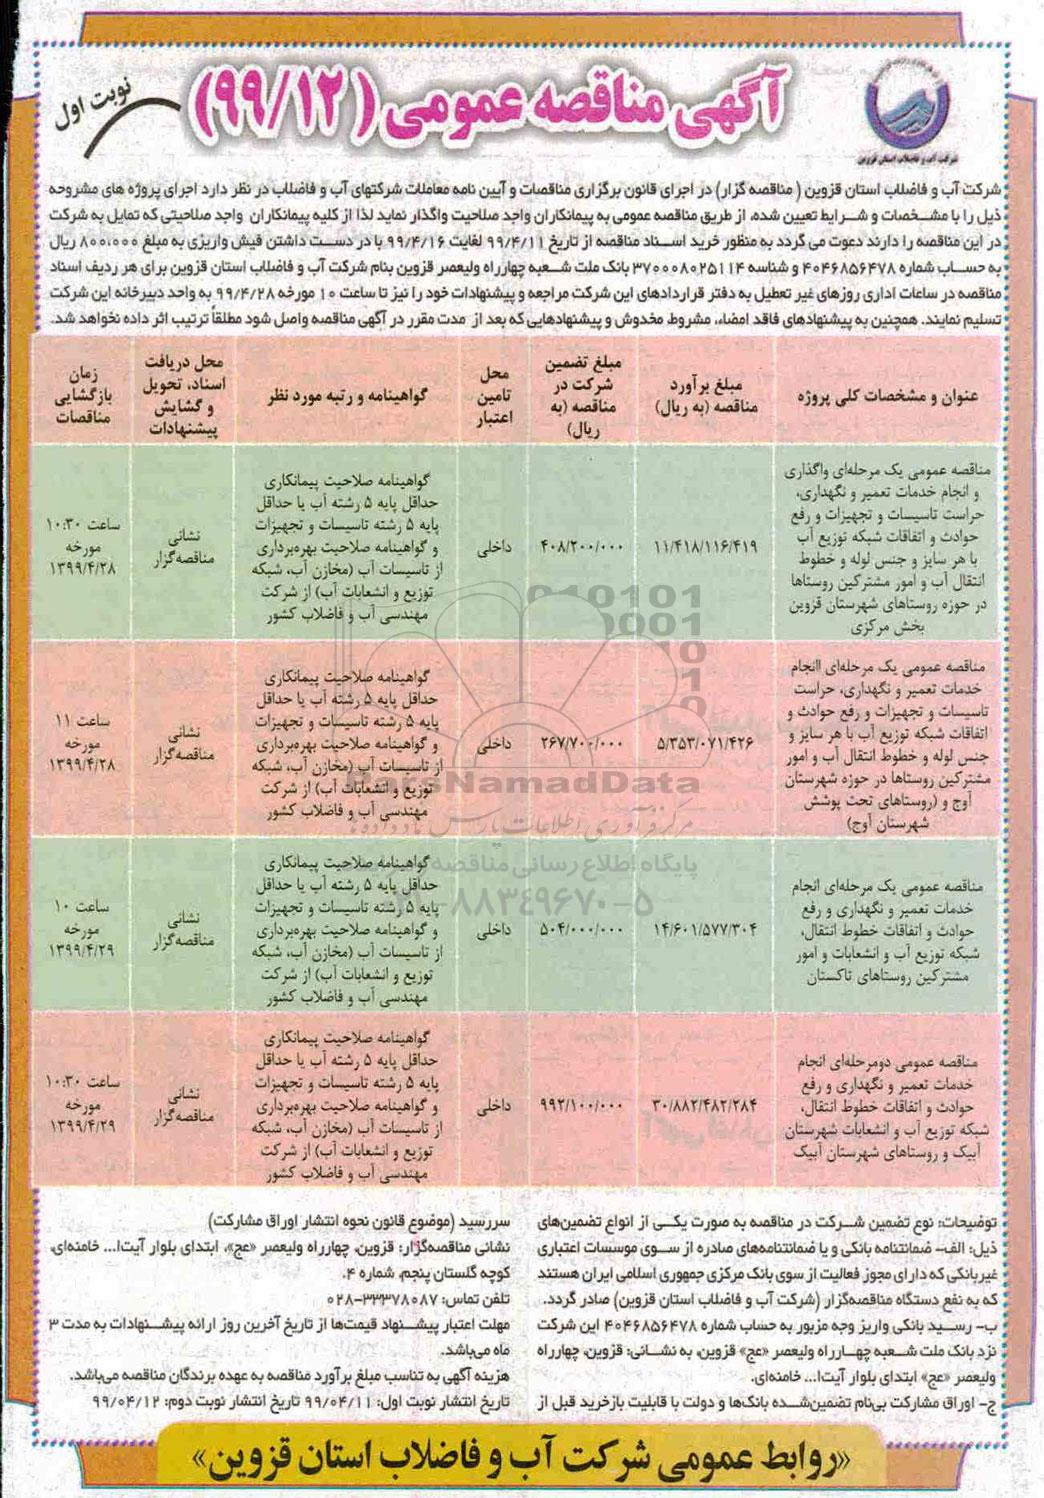 آگهی مناقصه عمومی (۹۹/۱۲)
نوبت اول
شرکت آب و فاضلاب استان قزوین
شرکت آب و فاضلاب استان قزوین ( مناقصه گزار) در اجرای قانون برگزاری مناقصات و آیین نامه معاملات شرکتهای آب و فاضلاب در نظر دارد اجرای پروژه های مشروحه
ذیل را با مشخصات و شرایط تعیین شده، از طریق مناقصه عمومی به پیمانکاران واجد صلاحیت واگذار نماید لذا از کلیه پیمانکاران واجد صلاحیتی که تمایل به شرکت
در این مناقصه را دارند دعوت می گردد به منظور خرید اسناد مناقصه از تاریخ ۹۹/۴/۱۱ لغایت ۹۹/۴/۱۶ با در دست داشتن فیش واریزی به مبلغ ۸۰۰،۰۰۰ ریال
به حساب شماره ۴۰۴۶۸۵۶۴۷۸ و شناسه ۳۷۰۰۰۸۰۲۵۱۱۴ بانک ملت شعبه چهارراه ولیعصر قزوین بنام شرکت آب و فاضلاب استان قزوین برای هر ردیف اسناد
مناقصه در ساعات اداری روزهای غیر تعطیل به دفتر قراردادهای این شرکت مراجعه و پیشنهادات خود را نیز تا ساعت ۱۰ مورخه ۹۹/۴/۲۸ به واحد دبیرخانه این شرکت
تسلیم نمایند. همچنین به پیشنهادهای فاقد امضاء، مشروط، مخدوش و پیشنهادهایی که بعد از مدت مقرر در آگهی مناقصه واصل شود مطلقاً ترتیب اثر داده نخواهد شد.
عنوان و مشخصات کلی پروژه
مبلغ برآورد
مناقصه (به ریال)
مبلغ تضمین
شرکت در
مناقصه (به
ریال)
محل
تامین
اعتبار
گواهینامه و رتبه مورد نظر
محل دریافت
اسناد، تحویل
و گشایش
پیشنهادات
زمان
بازگشایی
مناقصات
مناقصه عمومی یک مرحله‌ای واگذاری
و انجام خدمات تعمیر و نگهداری،
حراست تاسیسات و تجهیزات و رفع
حوادث و اتفاقات شبکه توزیع آب
با هر سایز و جنس لوله و خطوط
انتقال آب و امور مشترکین روستاها
در حوزه روستاهای شهرستان قزوین
بخش مرکزی
۱۱/۴۱۸/۱۱۶/۴۱۹
۴۰۸/۲۰۰/۰۰۰
داخلی
گواهینامه صلاحیت پیمانکاری
حداقل پایه ۵ رشته آب یا حداقل
پایه ۵ رشته تاسیسات و تجهیزات
و گواهینامه صلاحیت بهره‌برداری
از تاسیسات آب (مخازن آب، شبکه
توزیع و انشعابات آب) از شرکت
مهندسی آب و فاضلاب کشور
نشانی
مناقصه‌گزار
ساعت ۱۰:۳۰
مورخه
۱۳۹۹/۴/۲۸
مناقصه عمومی یک مرحله‌ای اانجام
خدمات تعمیر و نگهداری، حراست
تاسیسات و تجهیزات و رفع حوادث و
اتفاقات شبکه توزیع آب با هر سایز و
جنس لوله و خطوط انتقال آب و امور
مشترکین روستاها در حوزه شهرستان
آوج و (روستاهای تحت پوشش
شهرستان آوج)
۵/۳۵۳/۰۷۱/۴۲۶
۲۶۷/۷۰۰/۰۰۰
داخلی
گواهینامه صلاحیت پیمانکاری
حداقل پایه ۵ رشته آب یا حداقل
پایه ۵ رشته تاسیسات و تجهیزات
و گواهینامه صلاحیت بهره‌برداری
از تاسیسات آب (مخازن آب، شبکه
توزیع و انشعابات آب) از شرکت
مهندسی آب و فاضلاب کشور
نشانی
مناقصه‌گزار
ساعت ۱۱
مورخه
۱۳۹۹/۴/۲۸
ParsNamadData
مرکز فرآوری اطلاعات پارس نماد داده‌ها
پایگاه اطلاع رسانی مناقصه
۸۸۳۴۹۶۷۰-۵
مناقصه عمومی یک مرحله‌ای انجام
خدمات تعمیر و نگهداری و رفع
حوادث و اتفاقات خطوط انتقال،
شبکه توزیع آب و انشعابات و امور
مشترکین روستاهای تاکستان
۱۴/۶۰۱/۵۷۷/۳۰۴
۵۰۴/۰۰۰/۰۰۰
داخلی
گواهینامه صلاحیت پیمانکاری
حداقل پایه ۵ رشته آب یا حداقل
پایه ۵ رشته تاسیسات و تجهیزات
و گواهینامه صلاحیت بهره‌برداری
از تاسیسات آب (مخازن آب، شبکه
توزیع و انشعابات آب) از شرکت
مهندسی آب و فاضلاب کشور
نشانی
مناقصه‌گزار
ساعت ۱۰
مورخه
۱۳۹۹/۴/۲۹
مناقصه عمومی دومرحله‌ای انجام
خدمات تعمیر و نگهداری و رفع
حوادث و اتفاقات خطوط انتقال،
شبکه توزیع آب و انشعابات شهرستان
آبیک و روستاهای شهرستان آبیک
۳۰/۸۸۲/۴۸۲/۲۸۴
۹۹۲/۱۰۰/۰۰۰
داخلی
گواهینامه صلاحیت پیمانکاری
حداقل پایه ۵ رشته آب یا حداقل
پایه ۵ رشته تاسیسات و تجهیزات
و گواهینامه صلاحیت بهره‌برداری
از تاسیسات آب (مخازن آب، شبکه
توزیع و انشعابات آب) از شرکت
مهندسی آب و فاضلاب کشور
نشانی
مناقصه‌گزار
ساعت ۱۰:۳۰
مورخه
۱۳۹۹/۴/۲۹
توضیحات: نوع تضمین شرکت در مناقصه به صورت یکی از انواع تضمین‌های
ذیل: الف- ضمانتنامه بانکی و یا ضمانتنامه‌های صادره از سوی موسسات اعتباری
غیربانکی که دارای مجوز فعالیت از سوی بانک مرکزی جمهوری اسلامی ایران هستند
که به نفع دستگاه مناقصه‌گزار (شرکت آب و فاضلاب استان قزوین) صادر گردد.
ب- رسید بانکی واریز وجه مزبور به حساب شماره ۴۰۴۶۸۵۶۴۷۸ این شرکت
نزد بانک ملت شعبه چهارراه ولیعصر «عج» قزوین، به نشانی: قزوین، چهارراه
ولیعصر «عج» ابتدای بلوار آیت‌ا... خامنه‌ای.
ج- اوراق مشارکت بی‌نام تضمین‌شده بانک‌ها و دولت با قابلیت بازخرید قبل از
سررسید (موضوع قانون نحوه انتشار اوراق مشارکت)
نشانی مناقصه‌گزار: قزوین، چهارراه ولیعصر «عج»، ابتدای بلوار آیت‌ا... خامنه‌ای،
کوچه گلستان پنجم، شماره ۴.
تلفن تماس: ۳۳۳۷۸۰۸۷-۰۲۸
مهلت اعتبار پیشنهاد قیمت‌ها از تاریخ آخرین روز ارائه پیشنهادات به مدت ۳
ماه می‌باشد.
هزینه آگهی به تناسب مبلغ برآورد مناقصه به عهده برندگان مناقصه می‌باشد.
تاریخ انتشار نوبت اول: ۹۹/۰۴/۱۱ تاریخ انتشار نوبت دوم: ۹۹/۰۴/۱۲
«روابط عمومی شرکت آب و فاضلاب استان قزوین»